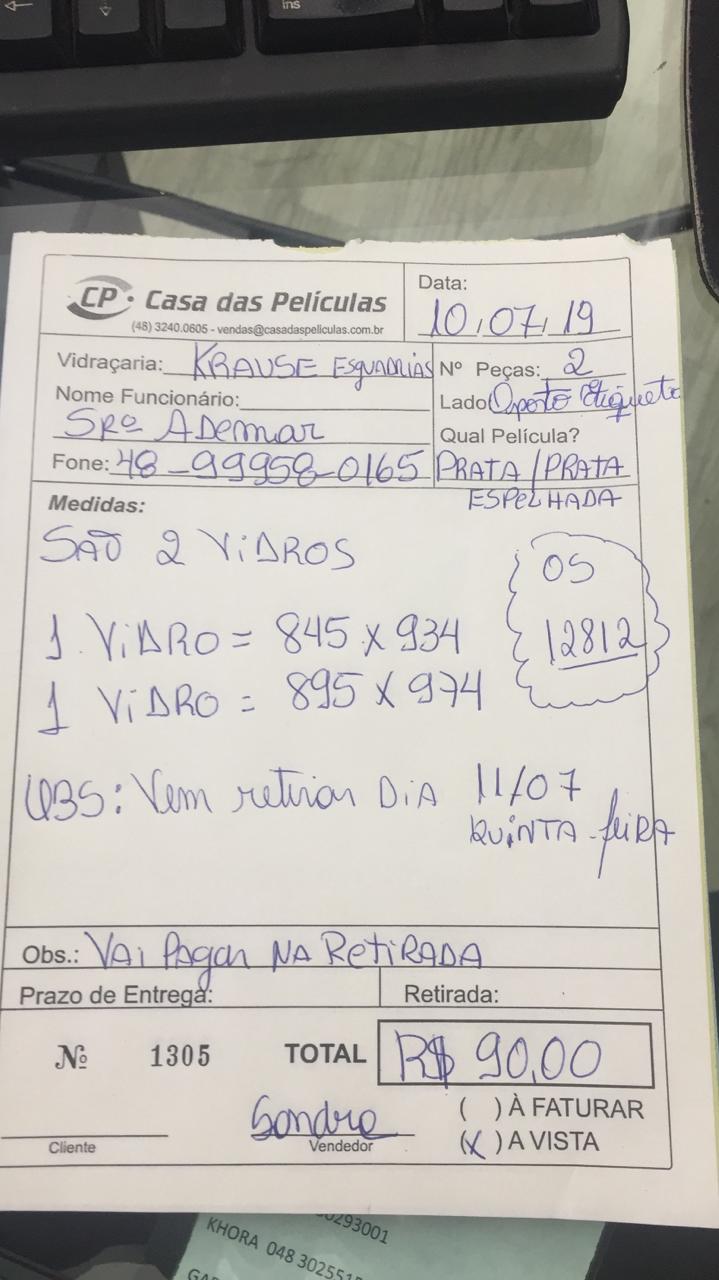 ins
CP. Casa das Películas
(48) 3240.0605 - vendas@casadaspeliculas.com.br
Data:
10/07/19
Vidraçaria: KRAUSE ESQUADRIAS
Nº Peças: 2
Nome Funcionário:
SRº ADEMAR
Lado Oposto Etiqueta
Qual Película?
Fone: 48-99958-0165
PRATA/PRATA
ESPELHADA
Medidas:
SÃO 2 VIDROS
OS
12812
1 VIDRO = 845 X 934
1 VIDRO = 895 X 974
OBS: Vem retirar DIA 11/07
QUINTA-feiRA
Obs.: VAI PAgar NA RetiRADA
Prazo de Entrega:
Retirada:
Nº 1305
TOTAL R$ 90,00
( ) À FATURAR
(X) A VISTA
Cliente
Vendedor
KHORA 048 302551